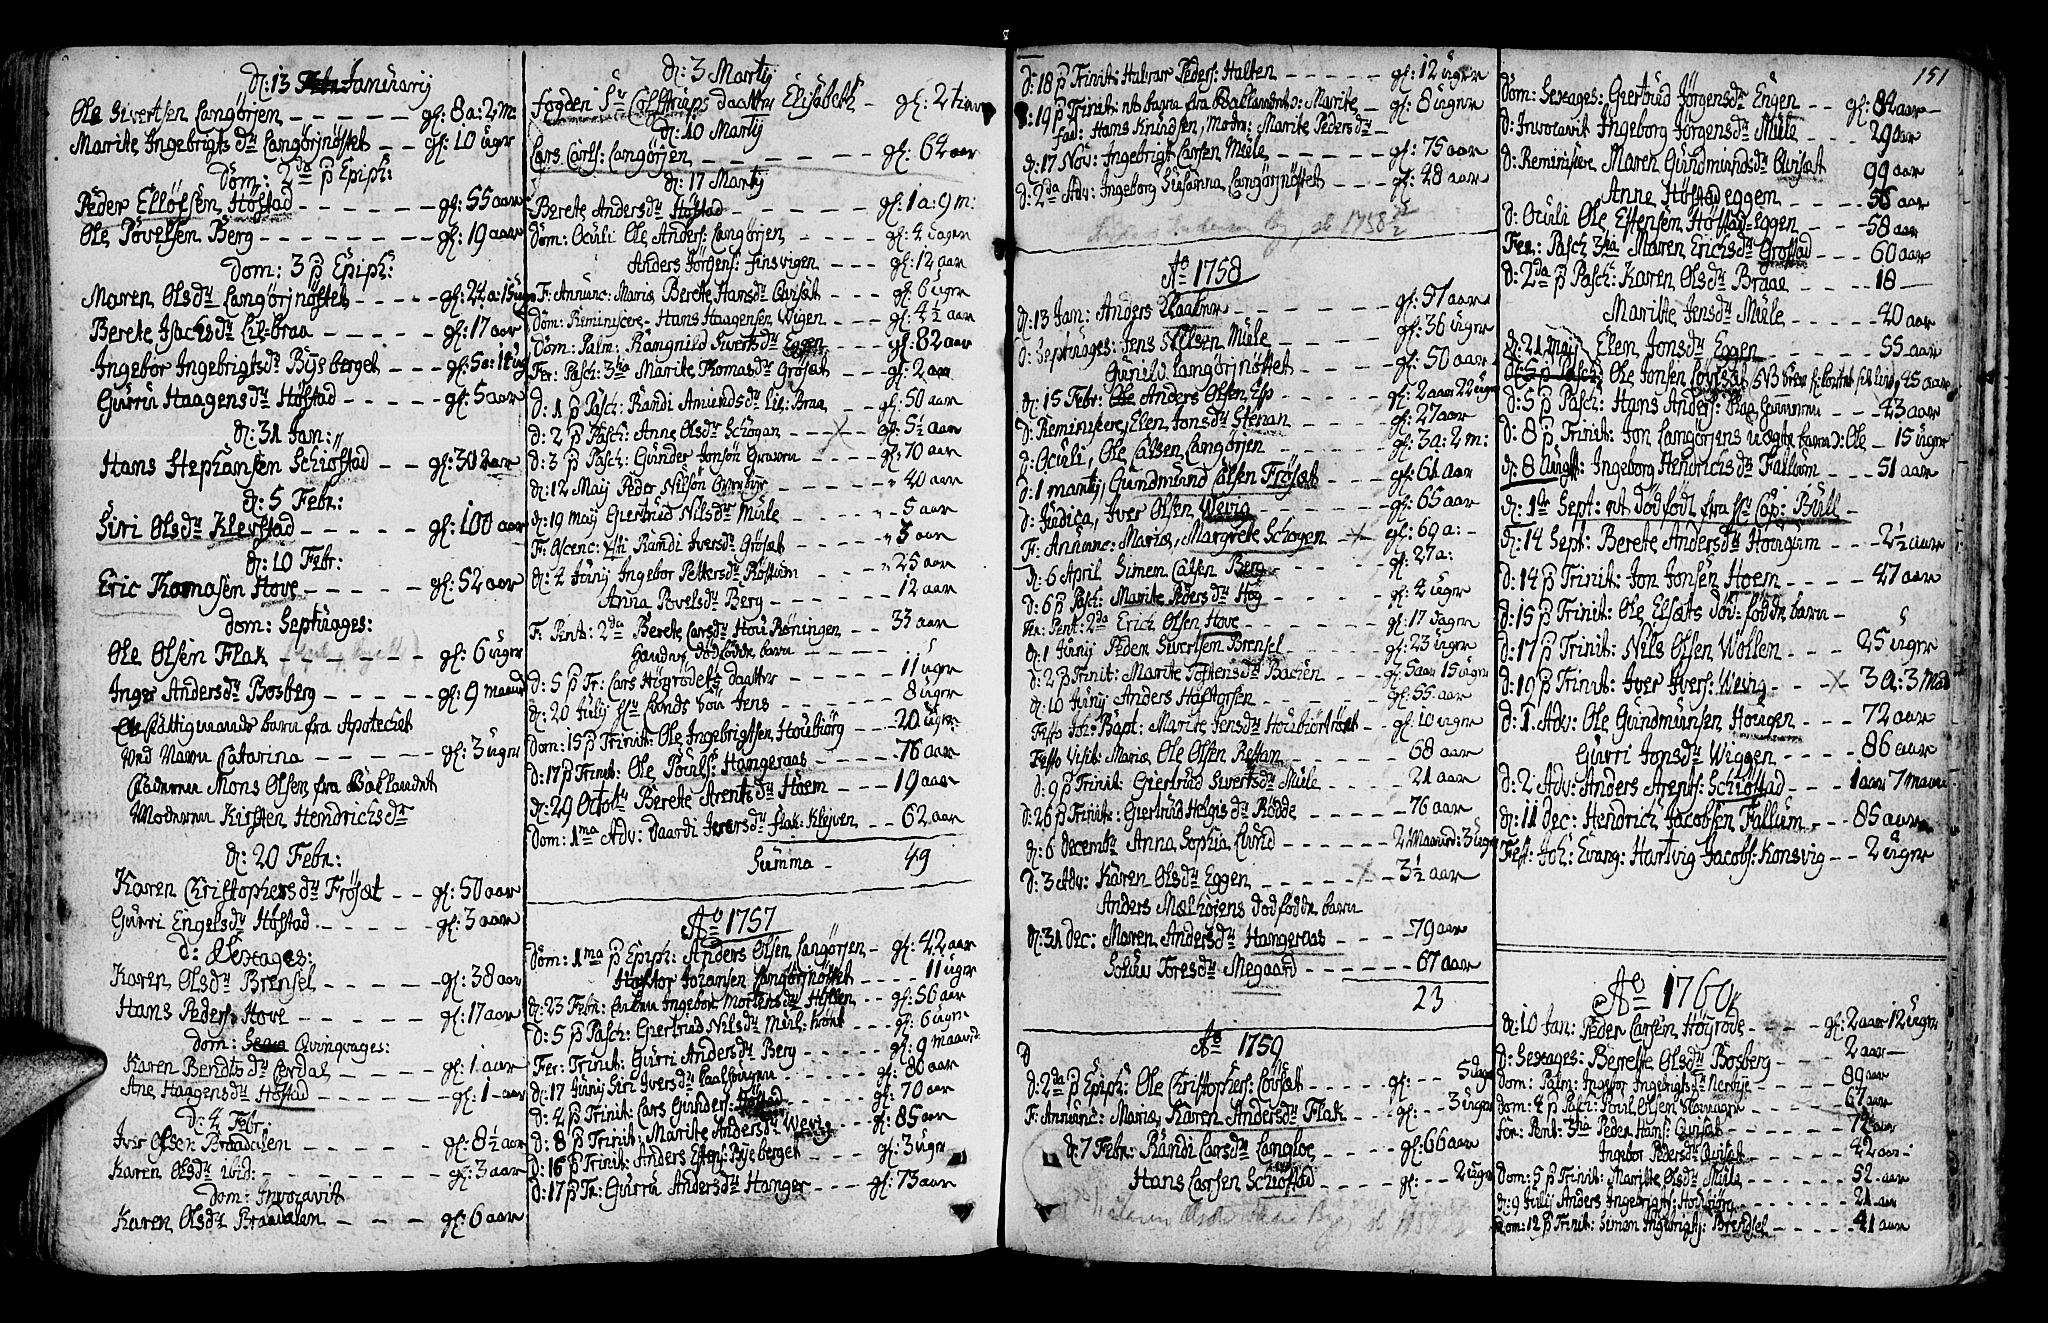 d: 13 Januarij
Ole Sivertsen Langörjen - - - gl: 8a: 2m
Marite Ingebrigts dr Langörjnöstet - - gl: 10 ugr
Dom: 2da p Epiph:
Peder Ellefsen Höstad - - - gl: 55 aar
Ole Povelsen Berg - - - gl: 19 aar
Dom: 3 p Epiph:
Maren Olsdr Langörjnöstet - - - gl: 24 a: 15 ug
Berete Isachsdr Lil-braa - - - gl: 17 aar
Ingebor Ingebrigtsdr Byeberget - - gl: 5a: 11 ug
Gurru Haagensdr Höstad - - - gl: 5 aar
d: 31 Jan:
Hans Stephansen Schiöstad - - gl: 30 aar
d: 5 Febr:
Siri Olsdr Klefstad - - - gl: 100 aar
d: 10 Febr:
Eric Thomasen Hove - - - gl: 52 aar
Dom: Septuages:
Ole Olsen Flak - - - gl: 6 ugr
Inger Andersdr Bosberg - - - gl: 9 maan
barn fra Apoteciet
ved Navn Catarina - - - gl: 3 ugr
Faderen Mons Olsen fra Ballandet
Moderen Kirsten Hendrichsdr
d: 20 Febr:
Karen Christophersdr Fröset - - gl: 50 aar
Gurri Engelsdr Höstad - - - gl: 3 aar
d: Sexages:
Karen Olsdr Brensel - - - gl: 38 aar
Hans Peders: Hove - - - gl: 17 aar
Dom: Qvinqvages:
Karen Bendtsdr Leerdal - - - gl: 1 aar
Ane Haagensdr Höstad - - - gl: 1 aar
d: 4 Febr:
Iver Olsen Braadalen - - - gl: 8½ aar
Karen Olsdr ibid: - - - gl: 3 aar
Dom: Invocavit
Karen Olsdr Braadalen - - - gl: 6 aar
d: 3 Martij
Fogden Sr Collstrups daatter Elisabeth - gl: 2 timer
d: 10 Martij
Lars Larss: Langörjen - - - gl: 64 aar
d: 17 Martij
Berete Andersdr Höstad - - - gl: 1 a: 9 m:
Dom: Oculi Ole Anders: Langörjen - - gl: 4 dagr
Anders Jörgens: Finsvigen - - - gl: 12 aar
F: Annunc: Mariæ Berete Hansdr Qvisæt - - gl: 6 ugr
Dom: Reminiscere Hans Haagensen Wigen - - gl: 4½ aar
Dom: Palm: Rangnild Sivertsdr Eggen - - gl: 82 aar
Fer: Pasch: 3tia Marite Thomasdr Gröset - - gl: 2 aar
d: 1 p Pasch: Randi Amundsdr Lil: Braa - - gl: 50 aar
d: 2 p Pasch: Anne Olsdr Schogan - - x - gl: 5½ aar
d: 3 p Pasch: Gunder Jonsön Graven - - gl: 70 aar
d: 12 Maij Peder Nilsön - - - 40 aar
d: 19 Maij Giertrud Nilsdr Mule - - - 5 aar
F: Ascenc: Randi Iversdr Gröset - - - 3 aar
d: 4 Junij Ingebor Pettersdr Röstum - - - 25 aar
Anna Povelsdr Berg - - - 12 aar
F: Pent: 2da Berete Larsdr Hou Röningen - - 33 aar
dödfödde barn - - -
d: 5 p Tr: Lars Höyrödets daatter - - - 11 ugr
d: 20 Julij Sr Lunds Sön Jens - - - 8 ugr
Dom: 15 p Trinit: Ole Ingebrigtsen Houbiörg - - 20 ugr
d: 17 p Trinit: Ole Pouels: Hangeraas - - - 76 aar
d: 29 Octobr Berete Arentsdr Hoem - - - 19 aar
Dom: 1ma Adv: Daardi Iversdr Flak-Klejven - - 62 aar
Summa - 49
Ao 1757
Dom: 1ma p Epiph: Anders Olsen Langörjen - gl: 42 aar
Hosten Johansen Langörjnöstet - - - 11 ugr
d: 23 Febr: Ingebor Mortensdr Hollen - - gl: 56 aar
d: 5 p Pasch: Giertrud Nilsdr Mule - - - gl: 6 ugr
Fer: Trinit: Gurri Andersdr Berg - - - gl: 9 maaned
d: 17 Junij Siri Iversdr - - - gl: 80 aar
d: 4 p Trinit: Lars Gunders: Höstad - - - gl: 70 aar
d: 8 p Trinit: Marite Andersdr Wevig - - - gl: 85 aar
d: 16 p Trinit: Anders Estens: Byeberget - - gl: 3 ugr
d: 17 p Tr: Gurru Andersdr Hanger - - - gl: 73 aar
d: 18 p Trinit: Halvar Peders: Halten - - - gl: 12 ugr
d: 19 p Trinit: et barn fra Ballandet: Marite - gl: 8 ugr
Fad: Hans Knudsen, Modr: Marite Pedersdr -
d: 17 Nov: Ingebrigt Larsen Mule - - - gl: 75 aar
d: 2da Adv: Ingeborg Susanna Langörjnöstet - - gl: 48 aar
Ao 1758
d: 13 Jan: Anders - - - gl: 57 aar
d: Septuages: Jens Nilsen Mule - - - gl: 36 ugr
Gunild Langörjnöstet - - - gl: 50 aar
d: 15 Febr: Anders Olsen Esp - - - gl: 2 aar 22 ugr
d: Reminiscere, Elen Jonsdr Stenan - - - gl: 27 aar
d: Oculi, Ole Larsen Langörjen - - - gl: 3a: 2m:
d: 1 Martij, Gundmund Larsen Fröset - - - gl: 61 aar
d: Judica, Iver Olsen Wevig - - - gl: 65 aar
F: Annunc: Mariæ, Margrete Schogen - x - gl: 69 a: -
d: 6 April Simen Larsen Berg - - - gl: 27 a:
d: 6 p Pasch: Marite Pedersdr Hög - - - gl: 4 ugr
Fer: Pent: 2da Erich Olsen Hove - - - gl: 17 dagr
d: 1 Junij Peder Sivertsen Brensel - - - gl: 23 ugr
d: 2 p Trinit: Marite Toftensdr Bacien - - gl: 5 aar 15 ugr
d: 10 Junij Anders Hastorsen - - - gl: 55 aar
Festo Joh: Bapt: Marite Jensdr Houbiörnöst - gl: 10 ugr
Festo Visit: Mariæ Ole Olsen Rettan - - - 68 aar
d: 9 p Trinit: Giertrud Sivertsdr Mule - - - 21 aar
d: 26 p Trinit: Giertrud Helgis dr Rödde - - - 76 aar
d: 6 Decembr Anna Sophia Lund - - - 2 Maaned: 3 ugr
d: 3 Adv: Karen Olsdr Eggen - - - x - 3½ aar
Anders Mælhojens dödfödde barn
d: 31 Dec: Maren Andersdr Hangeraas - - - 79 aar
Toresdr Megaard - - - 67 aar
23
Ao 1759
d: 2da p Epiph: Ole Christophers: Lövset - - gl: - - 5 dage
F: Annunc: Mariæ, Karen Andersdr Flak - - gl: - - 3 ugr
d: 7 Febr: Randi Larsdr Langloe - - - gl: 66 aar
Hans Larsen Schiöstad - - - gl: - - 2 ugr
151
Dom: Sexages: Giertrud Jörgensdr Engen - - gl: 84 aar
d: Invocavit Ingeborg Jörgensdr Mule - - - 29 aar
d: Reminiscere Maren Gundmundsdr Qvisæt - 99 aar
Anne Höstad eggem - - - 56 aar
d: Oculi Ole Estensen Höstad-Eggen - - 58 aar
Fer: Pasch 3tia Maren Erichsdr Grostad - - 60 aar
d: 2da p Pasch: Karen Olsdr Braae - - - 18 -
Marite Jensdr Mule - - - 40 aar
d: 21 Maij Elen Jonsdr Eggen - - - 55 aar
Ole Jonsen Lövset - - - 45 aar
d: 5 p Pasch: Hans Anders: - - - 43 aar
d: 8 p Trinit: Jon Langörjens uægte barn: Ole - 15 ugr
d: 8 Augst: Ingeborg Hendrichsdr Fallum - - 51 aar
d: 1te Sept: et dödfödt fra Hr Cap: Bull -
d: 14 Sept: Berete Andersdr Hougum - - - 2½ aar
d: 14 p Trinit: Jon Jonsen Hoem - - - 47 aar
d: 15 p Trinit: Ole Elsæts död-födde barn - -
d: 17 p Trinit: Nils Olsen Wollen - - - 25 ugr
d: 19 p Trinit: Iver Ivers: Wevig - - - x 3 a: 3 Mad
d: 1. Adv: Ole Gundmunsen Hougen - - - 72 aar
Gurri Jonsdr Wiggen - - - 86 aar
d: 2 Adv: Anders Arents: Schiöstad - - 1 aar 7 maan
d: 11 Dec: Hendrich Jacobsen Fallum - - - 85 aar
Fest: Joh: Evang: Hartvig Jacobs: Konsvig - - 2 ugr
Ao 1760
d: 10 Jan: Peder Larsen Höyröde - - - gl: 2 aar 12 ugr
d: Sexages: Berette Olsdr Bosberg - - - 2 aar -
Dom: Palm: Ingebor Ingebrigtsdr Nerbye - - - 89 aar
Dom: 4 p Pasch: Poul Olsen - - - 67 aar
Fer: Pent: 3tia Peder Hans: Qvisæt - - - 72 aar
Ingebor Pedersdr Qvisæt - - - 42 aar
Dom: 5 p Trinit: Maritte Olsdr Mule - - - 52 aar
d: 9 Julij Anders Ingebrigts: Houbiörg - - - 21 aar
Dom: 12 p Trinit: Simon Ingebrigts: Brensel - - - 41 aar